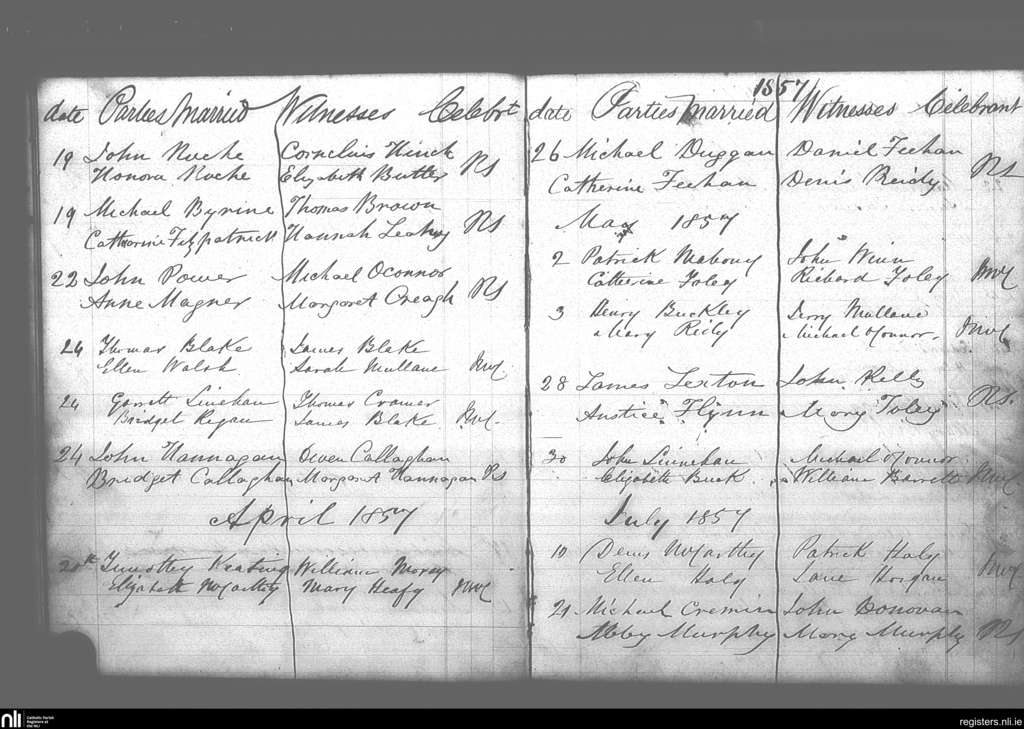 date Parties Married Witnesses Celebrt
19 John Roche Cornelius Hinck RS
Honora Roche Elizabeth Butler
19 Michael Byrine Thomas Brown RS
Catharine Fitzpatrick Hannah Leahy
22 John Power Michael Oconnor RS
Anne Magner Margaret Creagh
24 Thomas Blake James Blake
Ellen Walsh Sarah Mullane
24 Garrett Linehan Thomas Cramer
Bridget Regan James Blake
24 John Hannagan Owen Callaghan
Bridget Callaghan Margaret Hannagan RS
April 1857
20th Timothy Keating William
Elizabeth McCarthy Mary Heafy
1857
date Parties Married Witnesses Celebrant
26 Michael Duggan Daniel Feehan RS
Catherine Feehan Denis Reidy
May 1857
2 Patrick Mahony John Winn
Catherine Foley Richard Foley
3 Henry Buckley Derry Mullane
Mary Reidy Michael O'Connor
28 James Sexton John Kelly RS.
Anstice Flynn Mary Foley
30 John Linnehan Michael O'Connor
Elizabeth Buck William Barrett
July 1857
10 Denis McCarthy Patrick Haly
Ellen Haly Jane Horgan
21 Michael Cremin John Donovan
Abbey Murphy Mary Murphy RS
nli Catholic Parish
Registers at
the NLI
registers.nli.ie